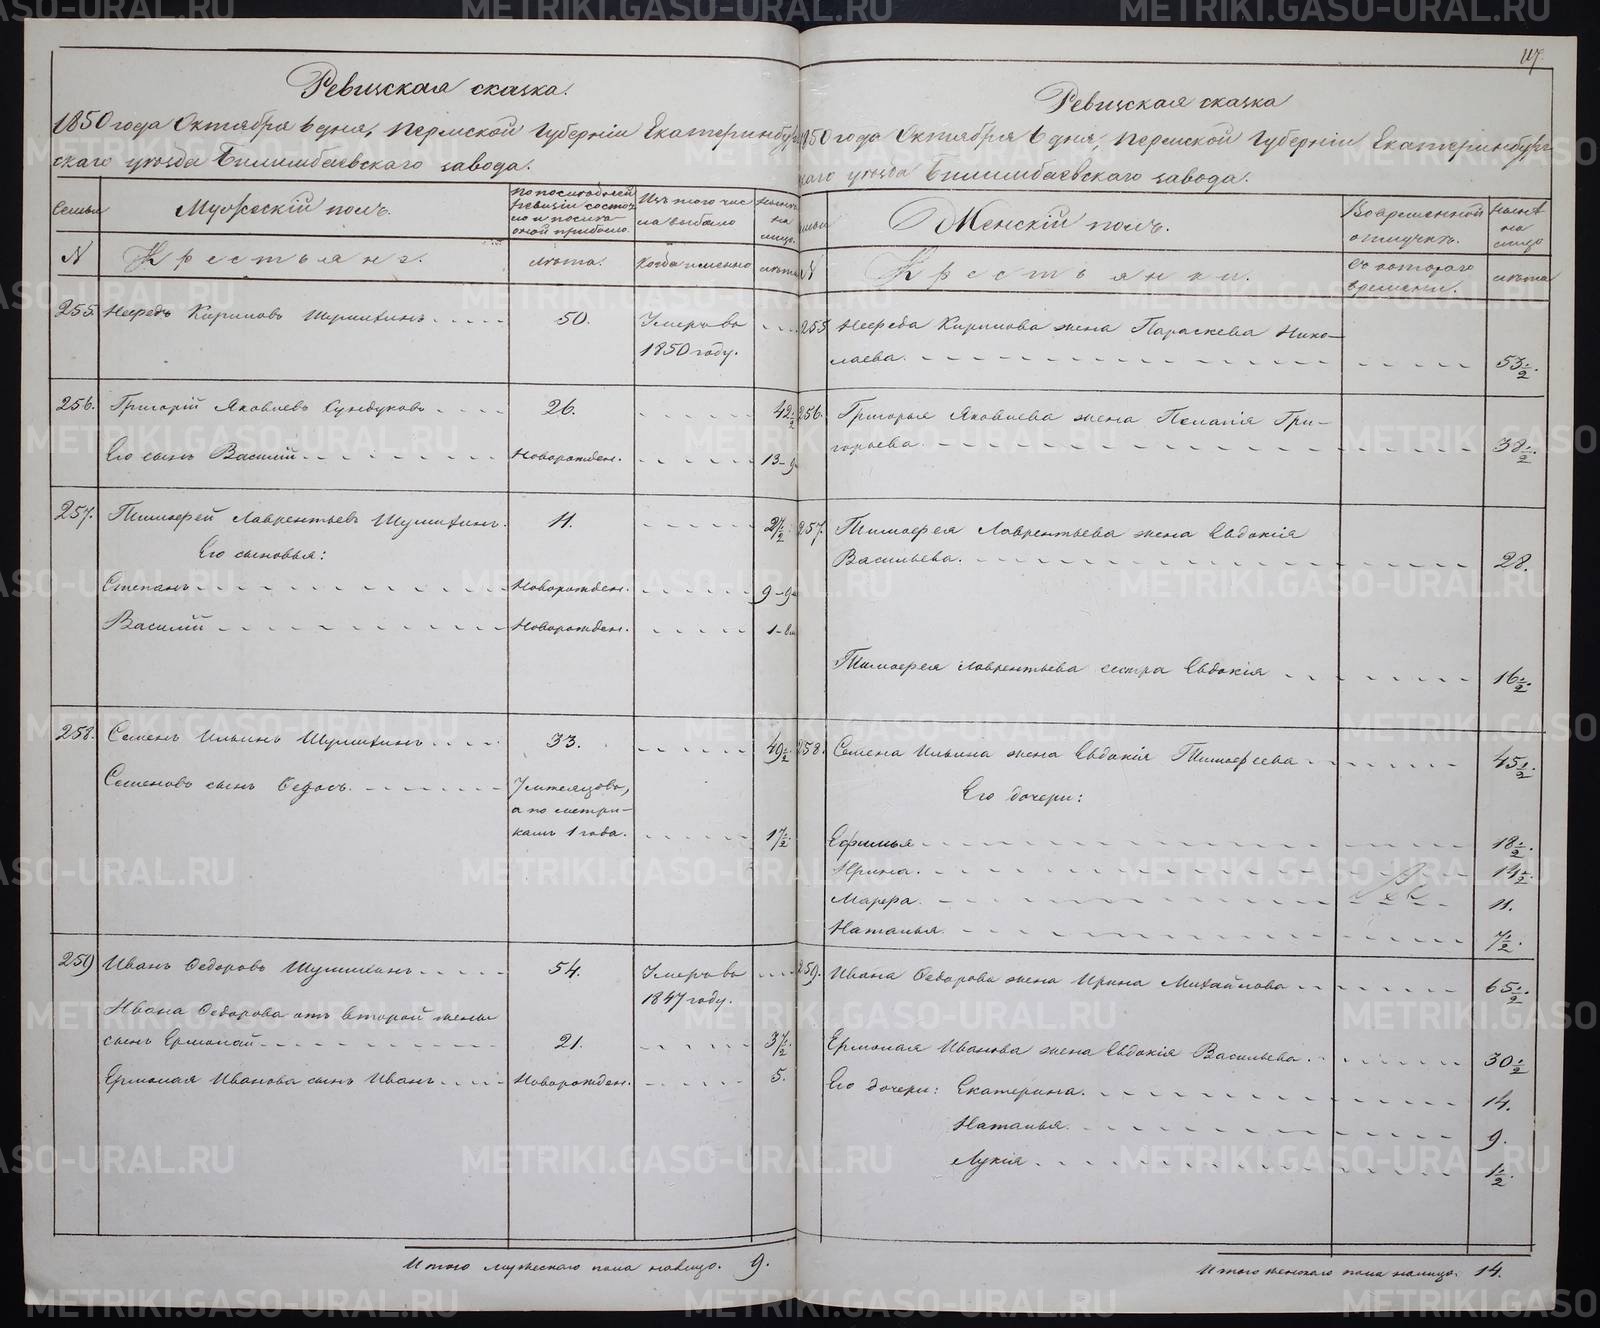 Ревизская сказка.
1850 года Октября 6 дня, Пермской Губерніи Екатеринбург-
скаго уѣзда Билимбаевскаго завода.
Семьи
Мужескій полъ.
По послѣдней ревизіи состояло и послѣ оной прибыло.
Изъ того числа выбыло
Нынѣ на лицо.
N
Крестьяне.
лѣта.
Когда именно
лѣта
255. Нефедъ Кириловъ Шумихинъ 50. Умеръ въ
1850 году.
256. Григорій Яковлевъ Сундуковъ 26. 42½
Его сынъ Василій Новорожден. 13-9
257. Тимофей Лаврентьевъ Шумихинъ. 11. 27½
Его сыновья:
Степанъ Новорожден. 9-9
Василій Новорожден. 1-8м
258. Семенъ Ильинъ Шумихинъ 33. 49½
Семеновъ сынъ Федосъ.
а по метри-
камъ 1 года. 17½
259 Иванъ Федоровъ Шумихинъ 54. Умеръ въ
1847 году.
Ивана Федорова отъ второй жены
сынъ Ермолай 21. 37½
Ермолая Иванова сынъ Иванъ Новорожден. 5.
Итого мужескаго пола налицо. 9.
117.
Ревизская сказка
1850 года Октября 6 дня, Пермской Губерніи Екатеринбург-
скаго уѣзда Билимбаевскаго завода.
Семьи
Женскій полъ.
Во временной отлучкѣ.
Нынѣ на лицо
N
Крестьянки.
Съ котораго времени.
лѣта
255 Нефеда Кирилова жена Параскева Нико-
лаева. 53½.
256. Григорья Яковлева жена Пелагія Гри-
горьева. 38½.
257. Тимофея Лаврентьева жена Евдокія
Васильева. 28.
Тимофея Лаврентьева сестра Евдокія 16½.
258. Семена Ильина жена Евдокія Тимофеева 45½.
Его дочери:
Ефимья 18½.
Ирина. 14½.
Марфа. 11.
Наталья. 7½.
259. Ивана Федорова жена Ирина Михайлова 65½.
Ермолая Иванова жена Евдокія Васильева. 30½
Его дочери: Екатерина. 14.
Наталья. 9.
Лукія. 1½.
Итого женскаго пола налицо. 14.
METRIKI.GASO-URAL.RU